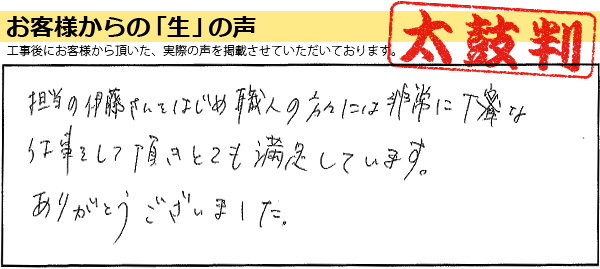 お客様からの「生」の声
工事後にお客様から頂いた、実際の声を掲載させていただいております。
太鼓判
担当の伊藤さんをはじめ職人の方々には非常に丁寧な
仕事をして頂きとても満足しています。
ありがとうございました。